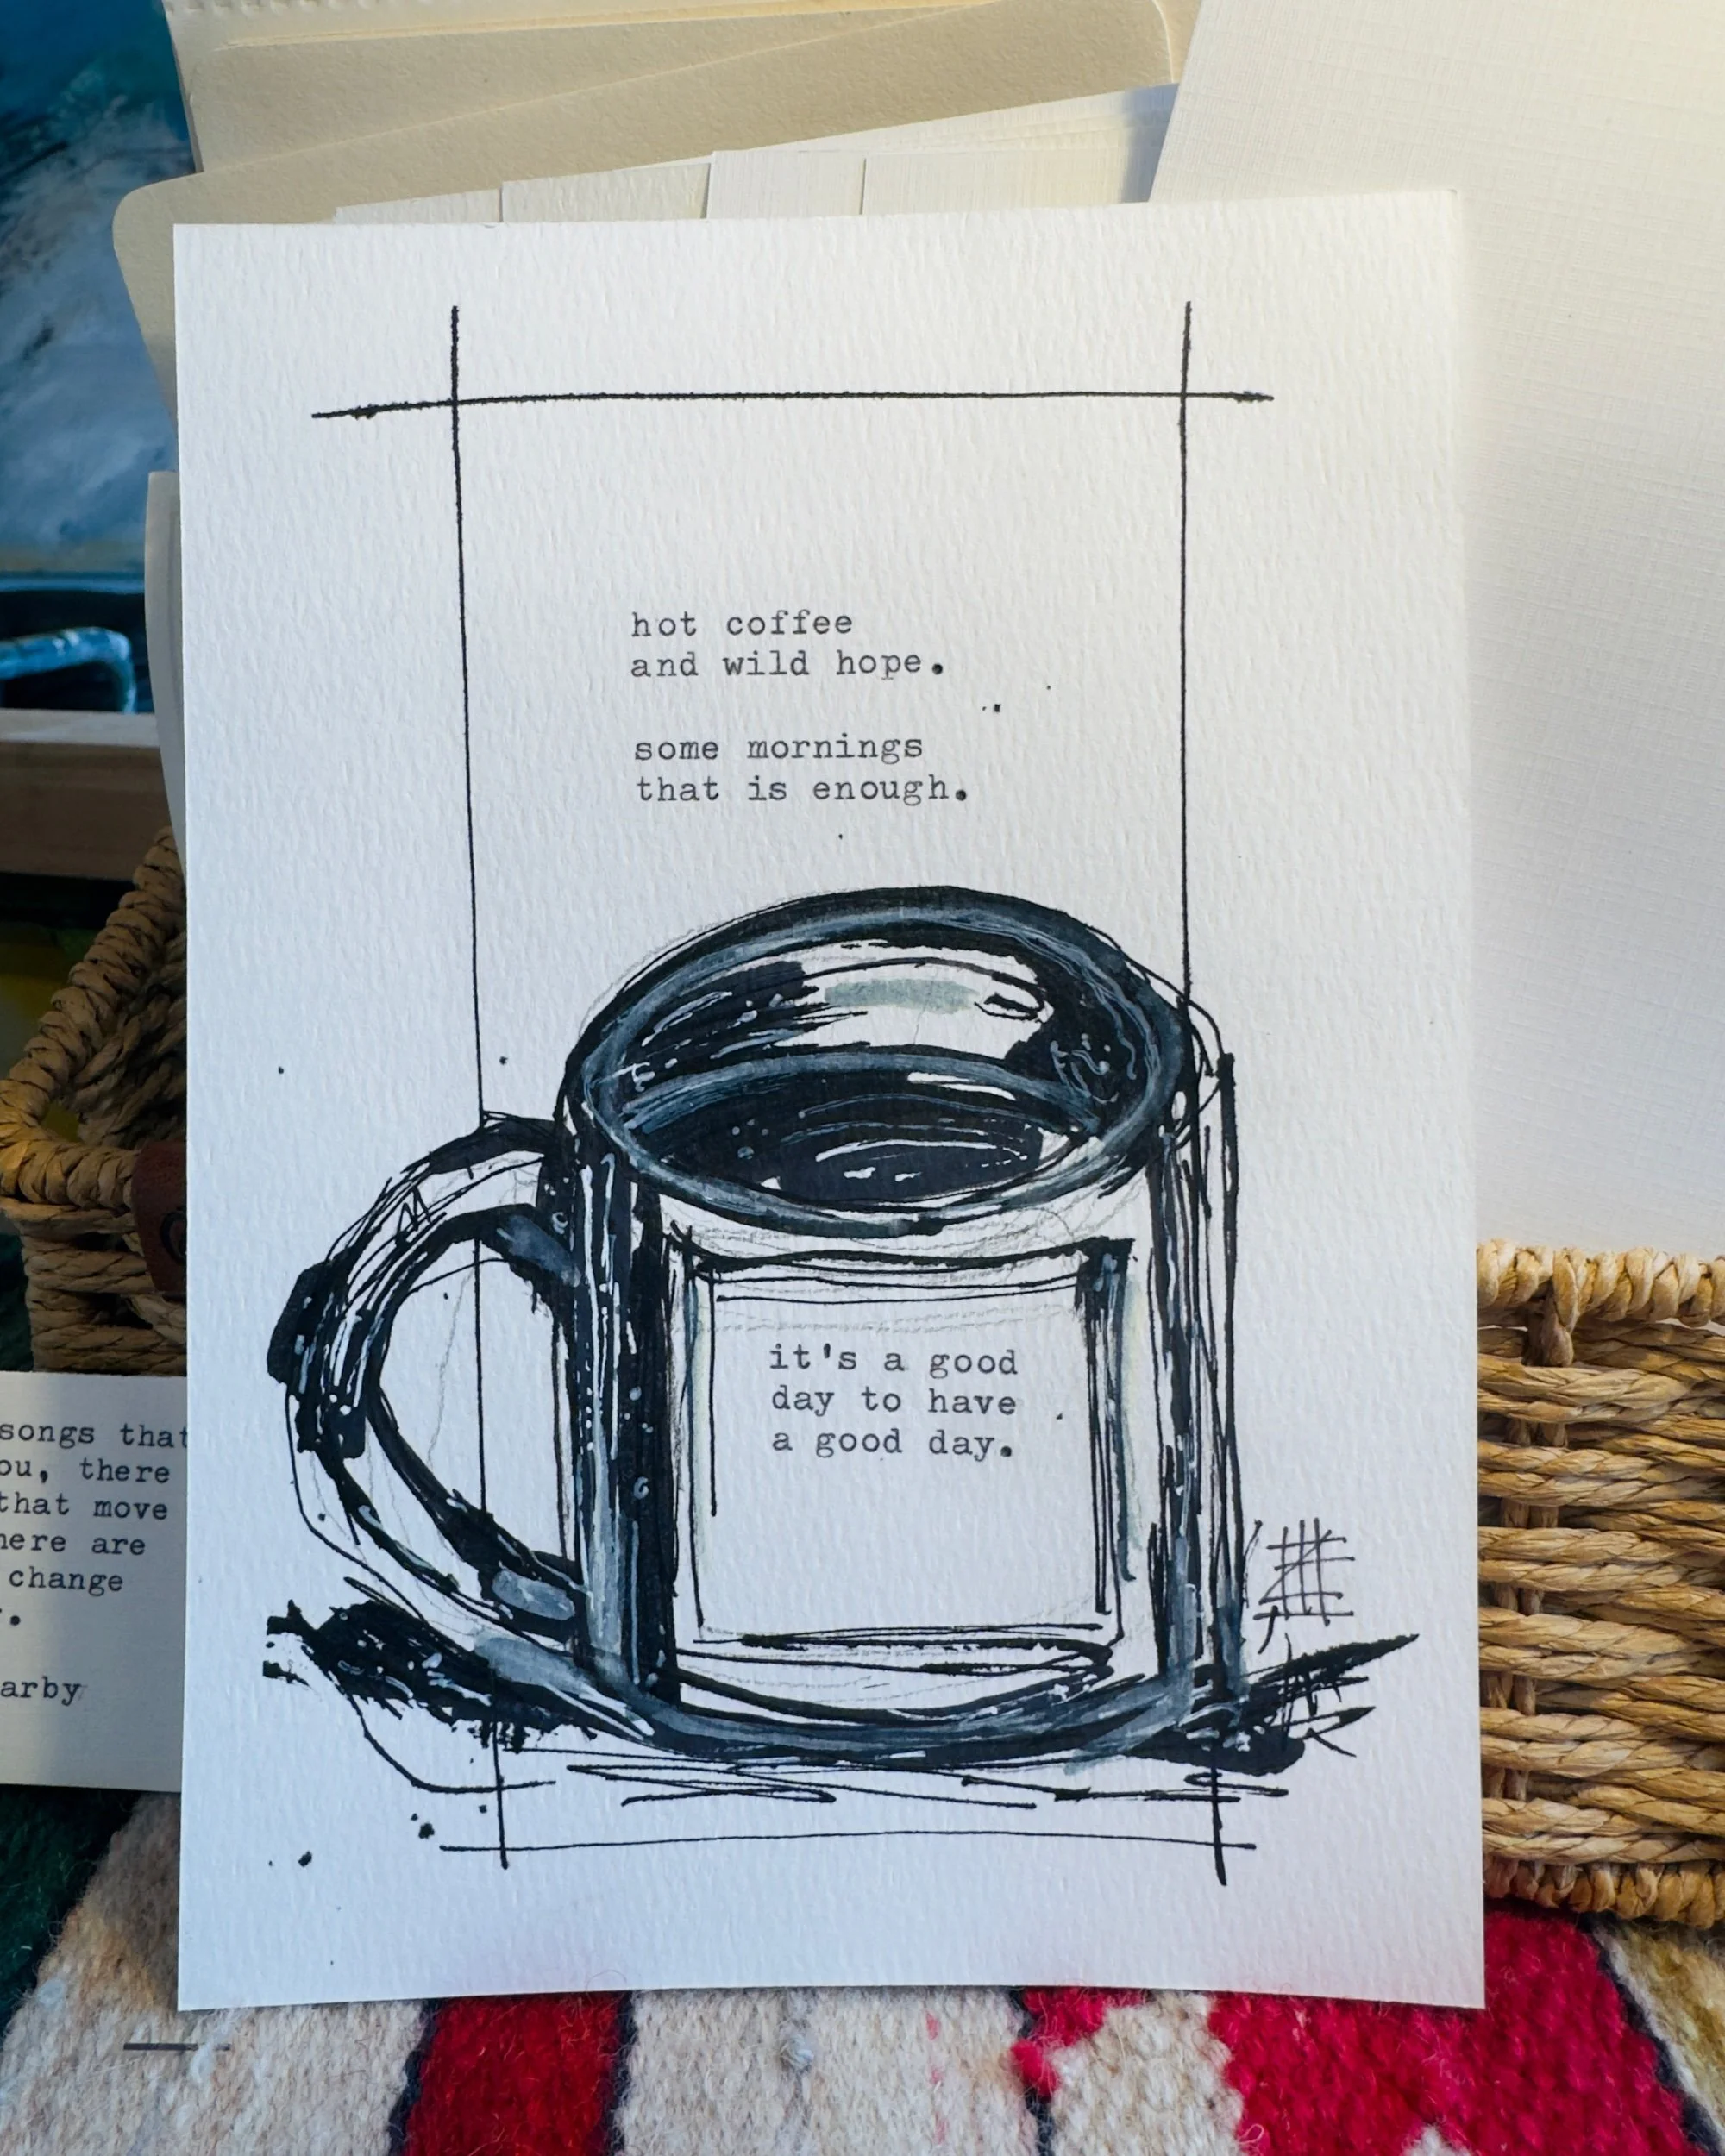 hot coffee
and wild hope.
some mornings
that is enough.
it's a good
day to have
a good day.
songs that
there
that move
are
change